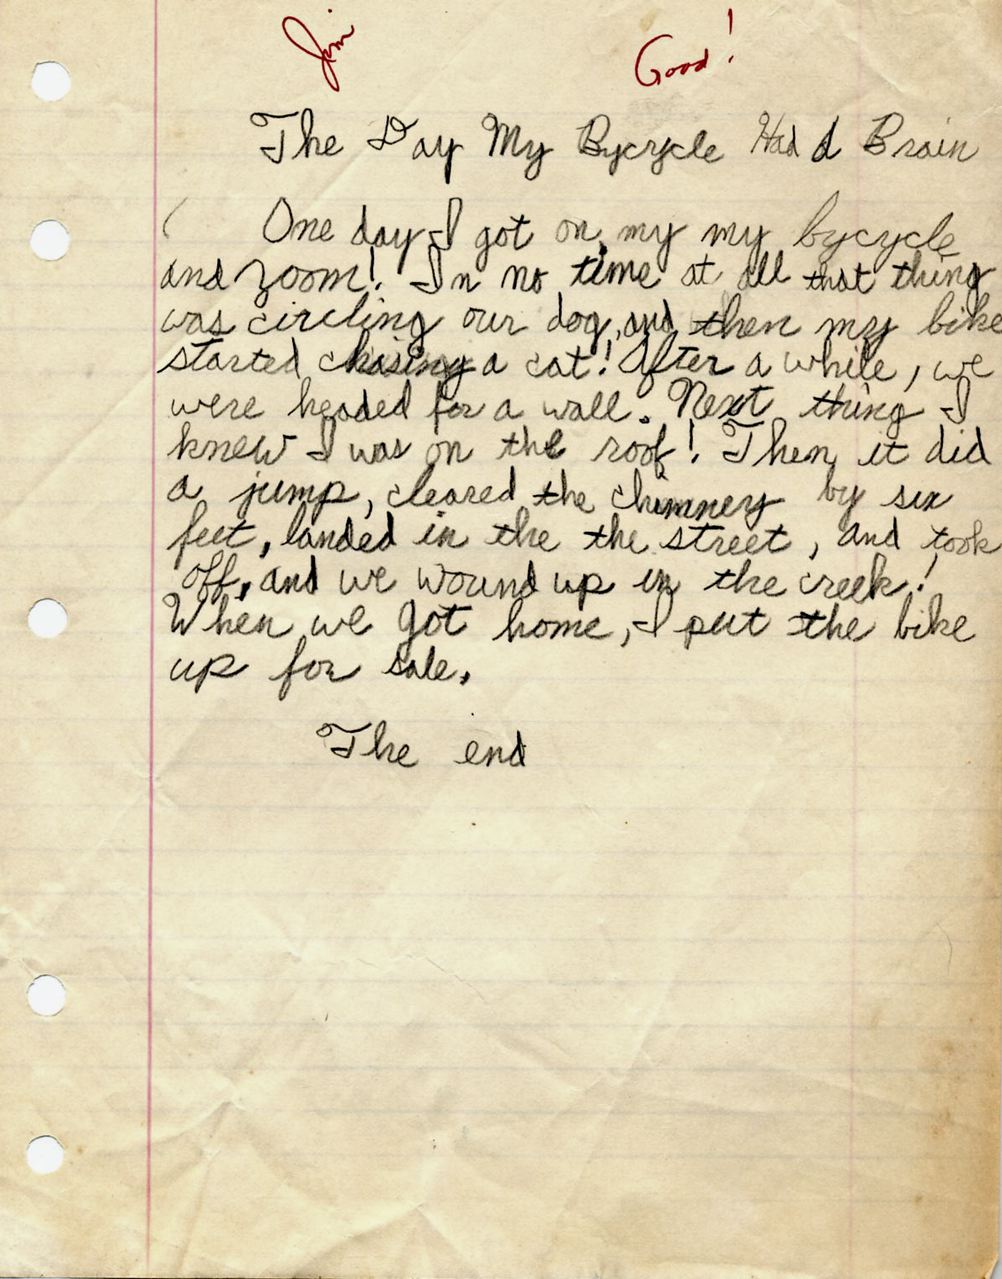 Jim Good!
The Day My Bycycle Had a Brain
One day I got on my my bycycle
and zoom! In no time at all that thing
was circling our dog, and then my bike
started chasing a cat! After a while, we
were headed for a wall. Next thing I
knew I was on the roof! Then it did
a jump, cleared the chimney by six
feet, landed in the the street, and took
off, and we wound up in the creek!
When we got home, I put the bike
up for sale.
The end